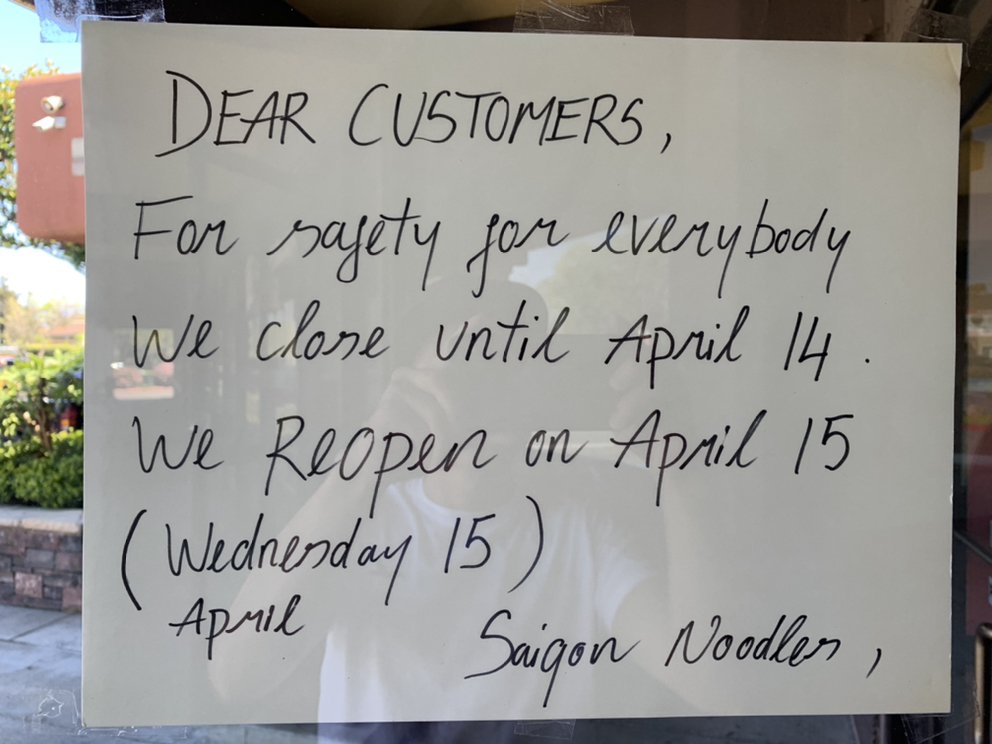 DEAR CUSTOMERS,
For safety for everybody
We close until April 14.
We Reopen on April 15
(Wednesday 15)
April
Saigon Noodles,